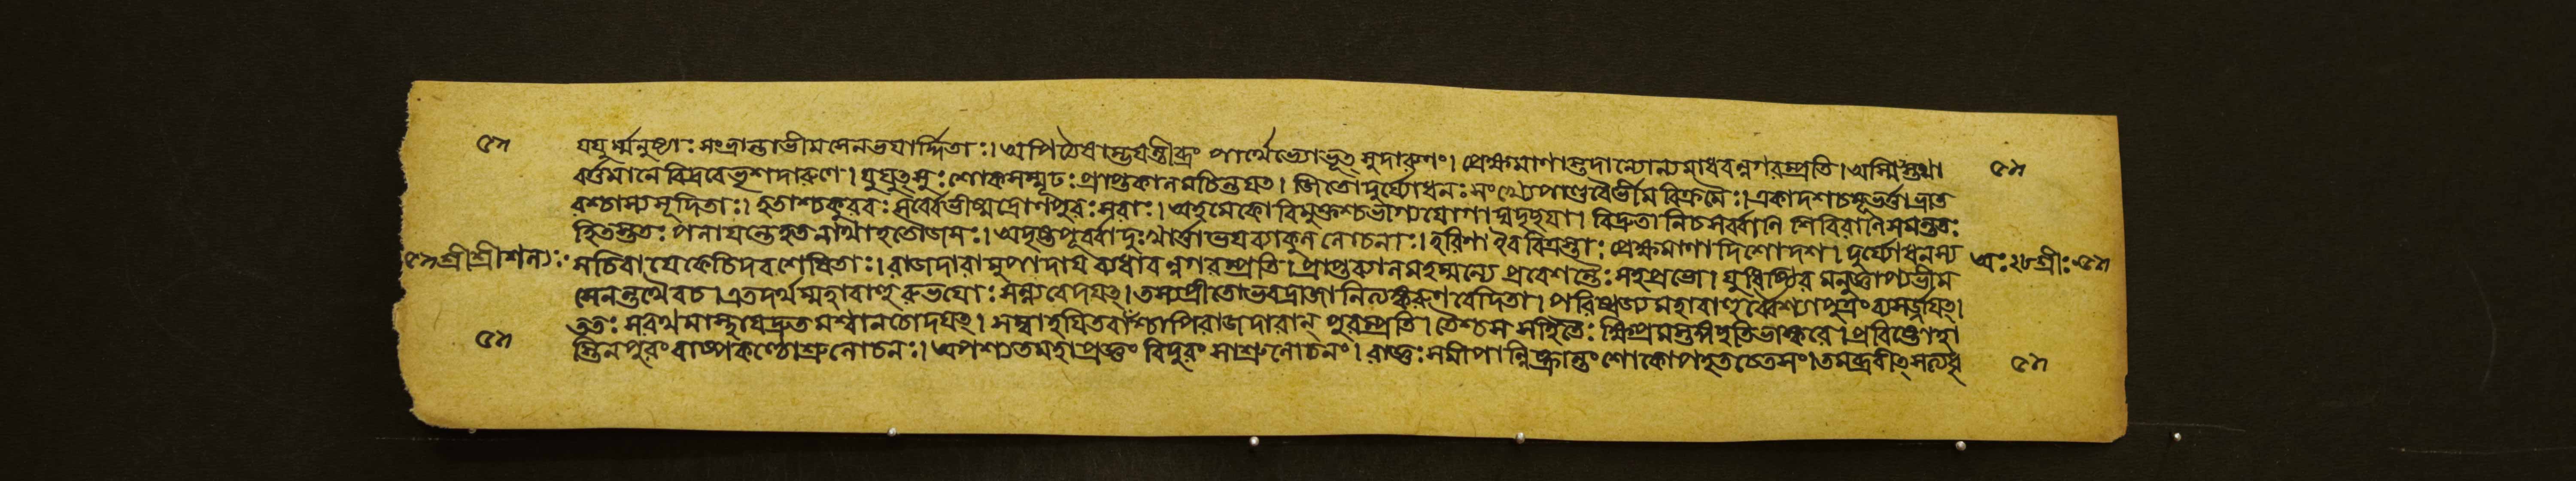 যযুর্ম্মনুষ্যাঃ সংভ্রান্তা ভীমসেনভযার্দ্দিতাঃ। অপি চৈষাম্ভযন্তীব্রং পার্থেভ্যোভূৎ সুদারুণং। প্রেক্ষমাণাস্তদান্যোন্যমাধবন্নগরম্প্রতি। অস্মিংস্তথা
বর্ত্তমানে বিদ্রবে ভৃশদারুণে। যুযুৎসুঃ শোকসম্মূঢঃ প্রাপ্তকালমচিন্তযত। জিতো দুর্য্যোধনঃ সংখ্যে পাণ্ডবৈর্ভীমবিক্রমৈঃ। একাদশচমূভর্ত্তা ভ্রাত
রশ্চাস্য সূদিতাঃ। হতাশ্চ কুরবঃ সর্ব্বে ভীষ্মদ্রোণপুরঃসরাঃ। অহমেকো বিমুক্তশ্চ ভাগ্যযোগাদ্যদৃচ্ছযা। বিদ্রুতানি চ সর্ব্বাণি শিবিরাণি সমন্ততঃ
হিতস্ততঃ পলাযন্তে হতনাথা হতৌজসঃ। অদৃষ্টপূর্ব্বা দুঃখার্ত্তা ভযব্যাকুললোচনাঃ। হরিণা ইব বিত্রস্তাঃ প্রেক্ষমাণা দিশো দশ। দুর্য্যোধনস্য
৫৯ শ্রীশ্রীশল্যঃ সচিবা যে কেচিদবশেষিতাঃ। রাজদারামুপাদায ব্যধাবন্নগরম্প্রতি। প্রাপ্তকালমহম্মন্যে প্রবেশন্তৈঃ সহ প্রভো। যুধিষ্ঠিরমনুজ্ঞাপ্য ভীম অঃ ২৮ শ্রীঃ ৫৯
সেনন্তথৈব চ। এতদর্থম্মহাবাহুরুভযোঃ সন্ন্যবেদযৎ। তস্য প্রীতোভবদ্রাজা নিত্যঙ্করুণবেদিতা। পরিষ্বজ্য মহাবাহুর্ব্বৈশ্যাপুত্রং ব্যসর্জ্জযৎ।
ততঃ স রথমাস্থায দ্রুতমশ্বানচোদযৎ। সম্বাহযিতবাংশ্চাপি রাজদারান্ পুরম্প্রতি। তৈশ্চৈব সহিতঃ ক্ষিপ্রমস্তঙ্গচ্ছতি ভাস্করে। প্রবিষ্টো হা
স্তিনপুরং বাষ্পকণ্ঠোশ্রুলোচনঃ। অপশ্যত মহাপ্রাজ্ঞং বিদুরং সাশ্রুলোচনং। রাজ্ঞঃ সমীপান্নিষ্ক্রান্তং শোকোপহতচেতসং। তমব্রবীৎ সত্যধৃ